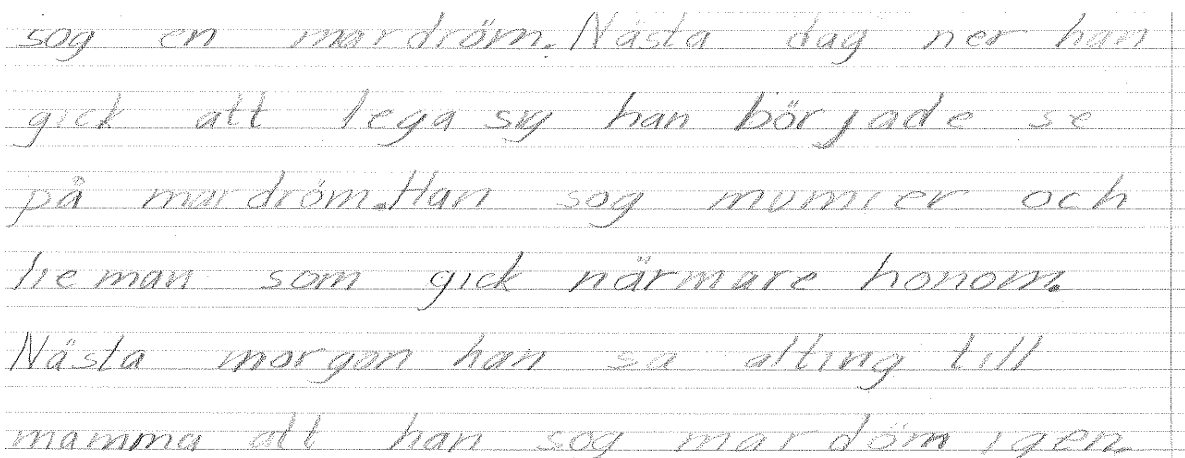 sog en mardröm. Nästa dag ner han
gick att lega sig han började se
på mardröm. Han sog mumier och
lieman som gick närmare honom.
Nästa morgon han sa alting till
mamma att han sog mardöm igen.